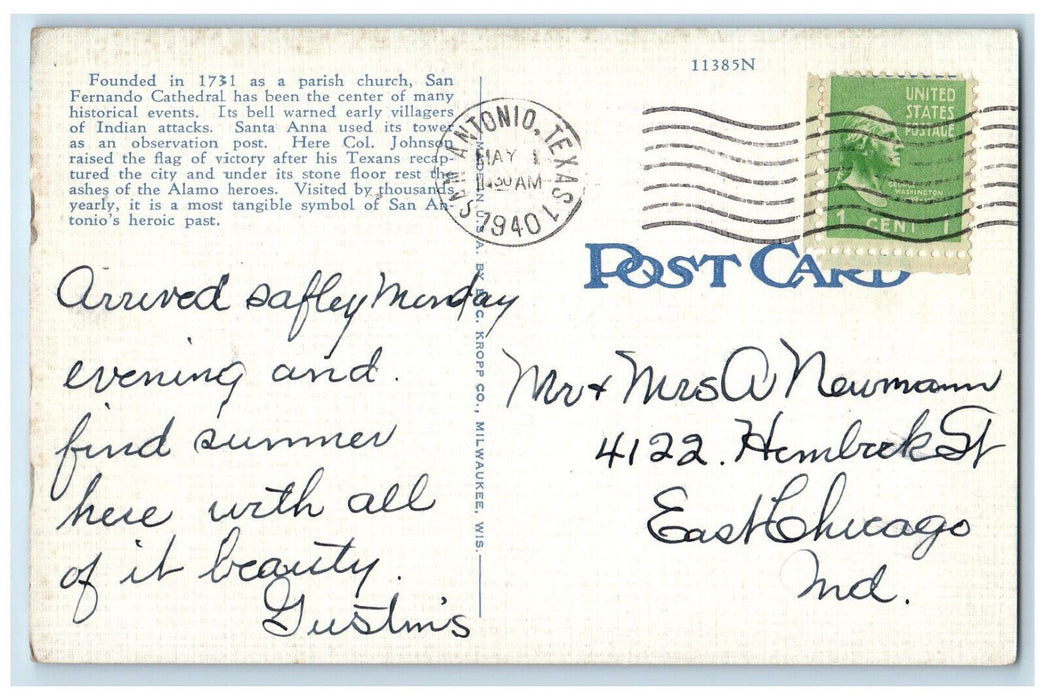 Founded in 1731 as a parish church, San
Fernando Cathedral has been the center of many
historical events. Its bell warned early villagers
of Indian attacks. Santa Anna used its tower
as an observation post. Here Col. Johnson
raised the flag of victory after his Texans recap-
tured the city and under its stone floor rest the
ashes of the Alamo heroes. Visited by thousands
yearly, it is a most tangible symbol of San An-
tonio's heroic past.
11385N
SAN ANTONIO, TEXAS 1
MAY 1
30 AM
1940
UNITED
STATES
POSTAGE
GEORGE
WASHINGTON
1 CENT 1
POST CARD
MADE IN U.S.A. BY E. C. KROPP CO., MILWAUKEE, WIS.
Arrived safley Monday
evening and.
find summer
here with all
of it beauty.
Gustin's
Mr + Mrs A Newmann
4122. St
East Chicago
Ind.